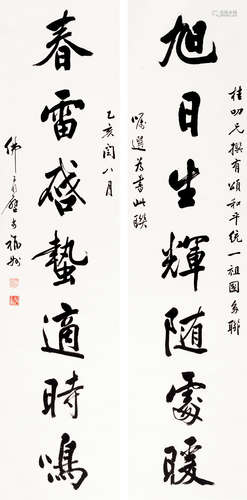 旭日生輝随處暖
桂叨元撰有頌和平統一祖國多聯
嘱選為書此聯
春雷啓蟄適時鳴
乙亥閏八月